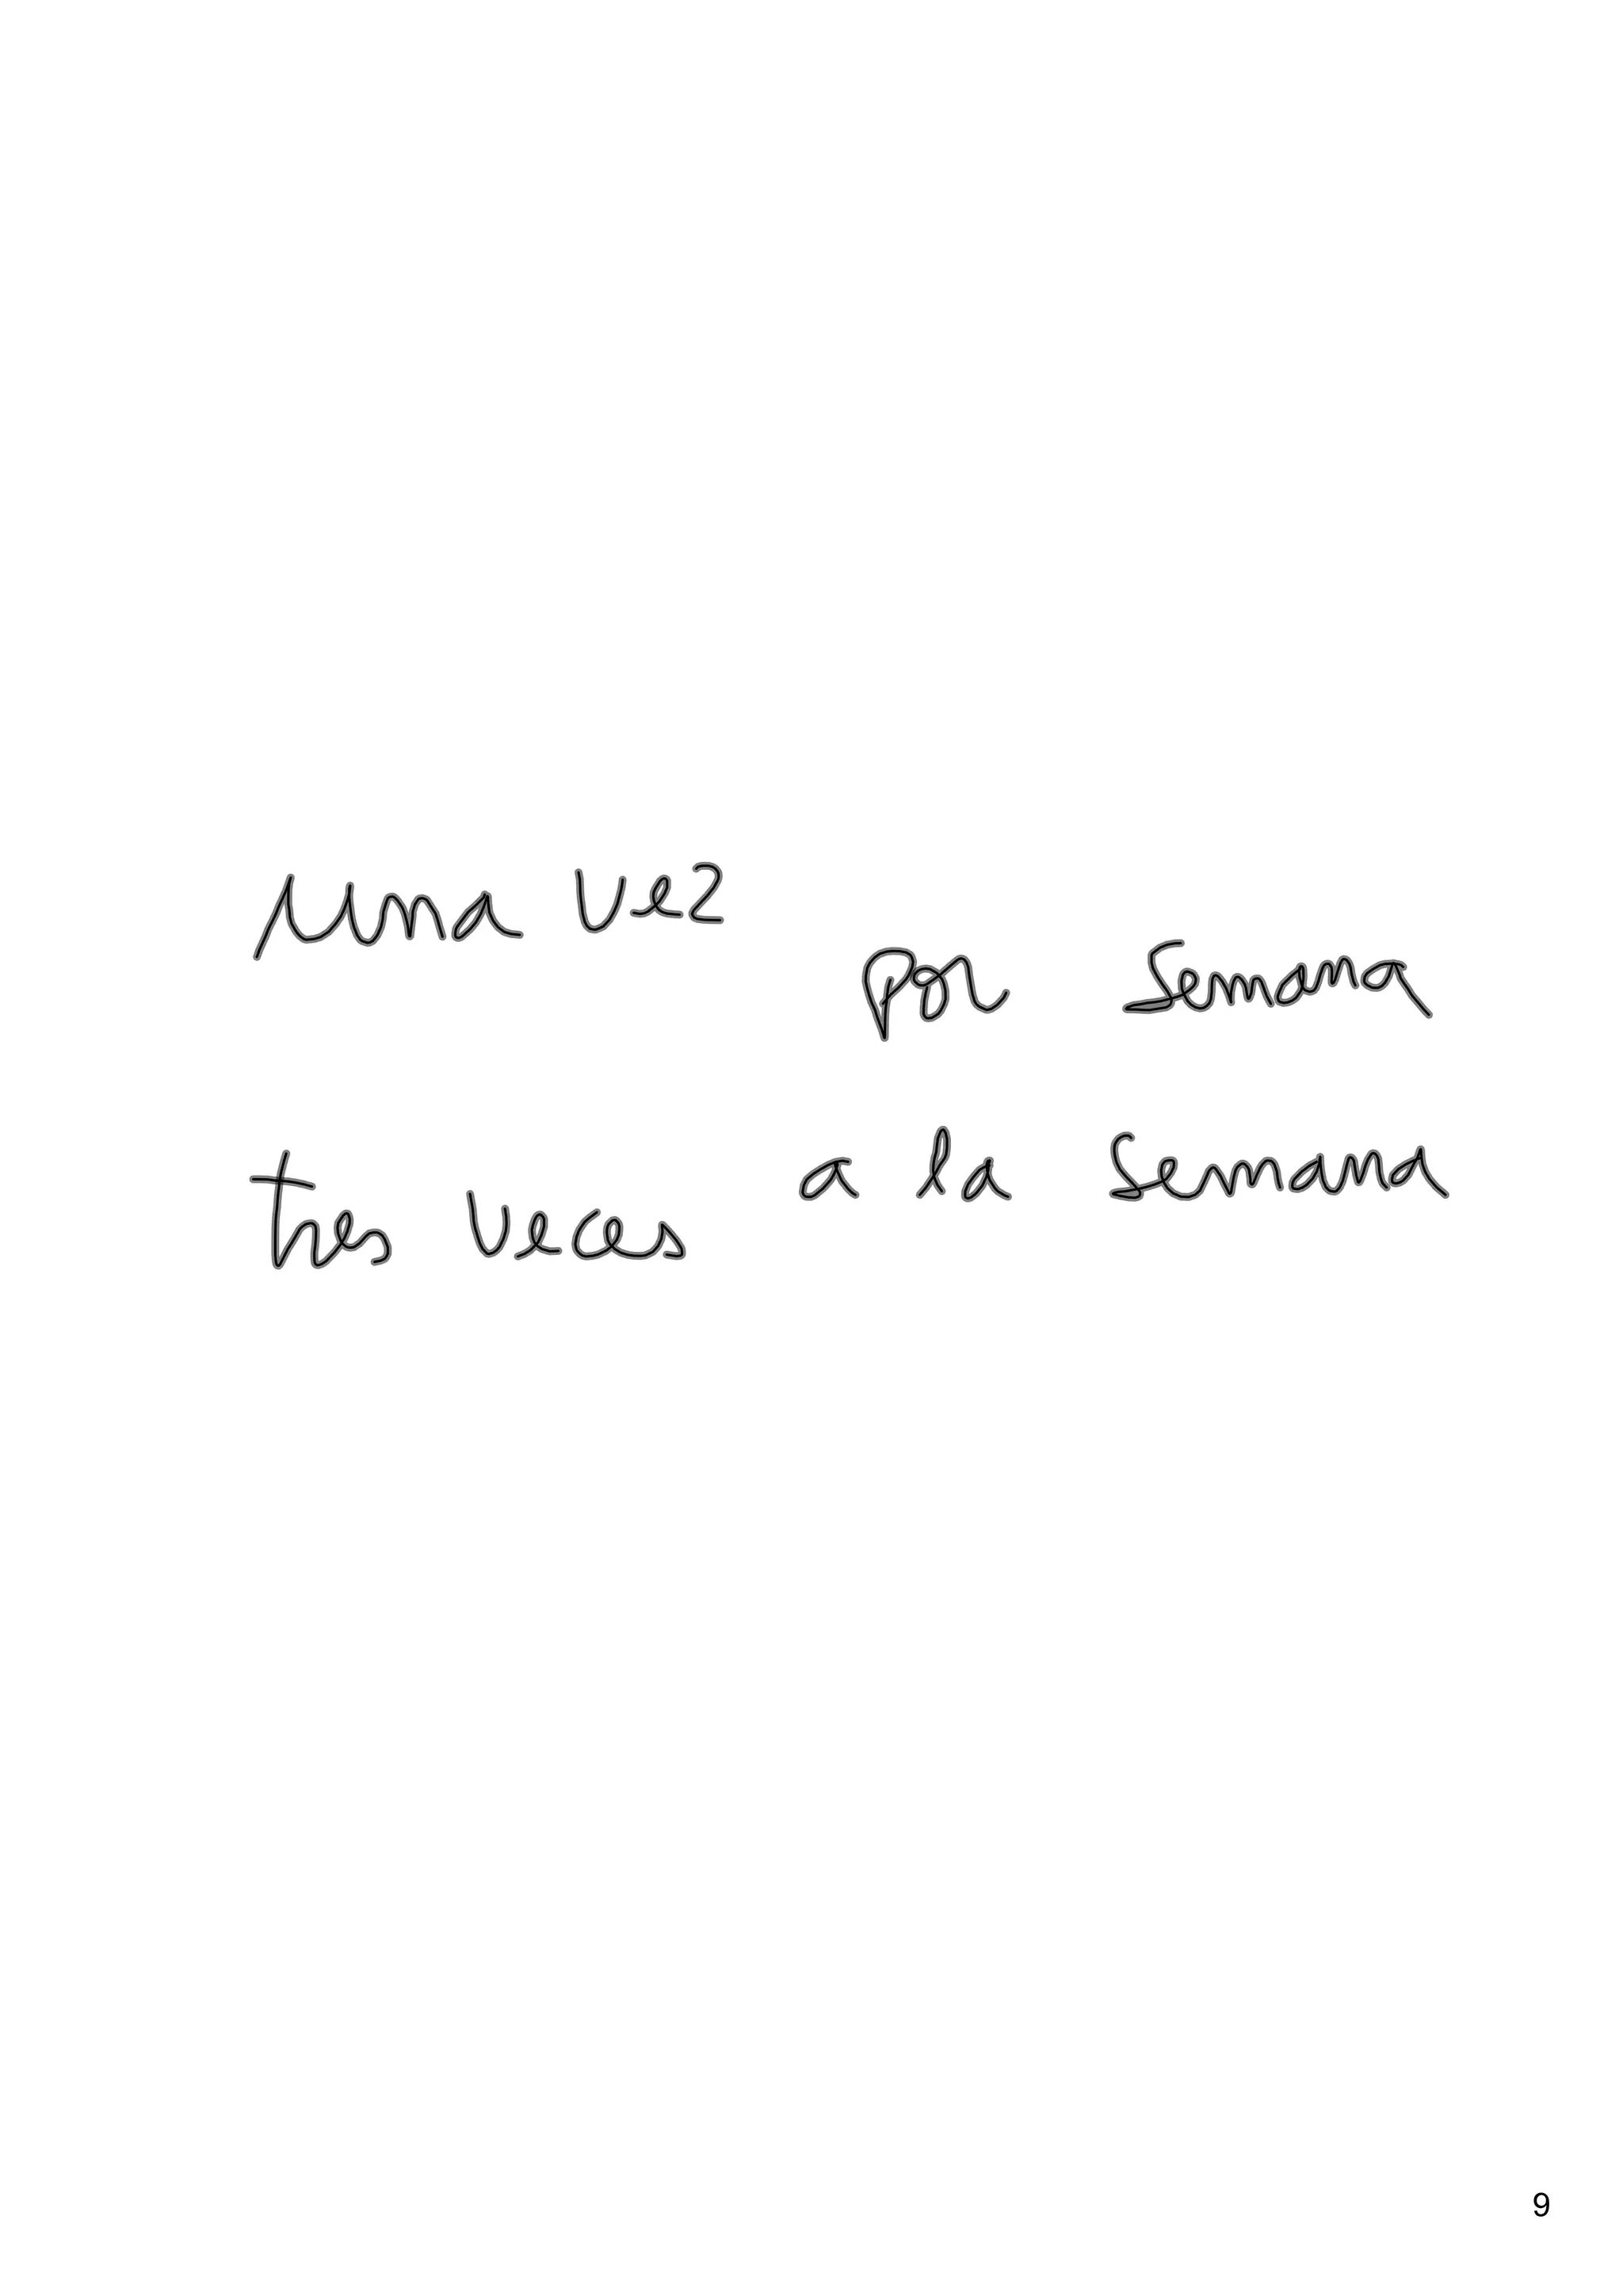 una vez por semana
tres veces a la semana
9